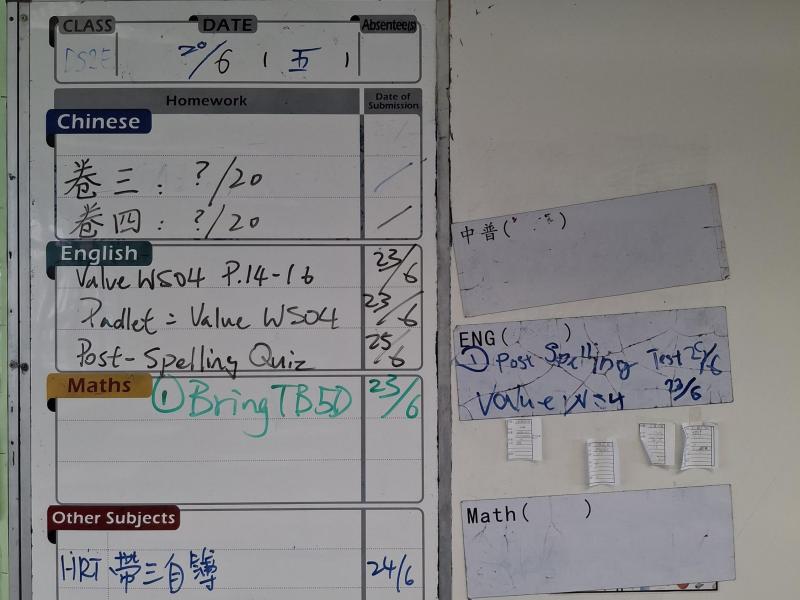 CLASS DATE Absentee(s)
20/6 ( 五 )
Homework Date of Submission
Chinese
卷三：?/20 /
卷四：?/20 /
English
Value WS04 P.14-16 23/6
Padlet = Value WS04 23/6
Post-Spelling Quiz 25/6
Maths
① Bring TB5D 23/6
Other Subjects
HRT 帶三自簿 24/6
中普( )
ENG( )
① Post Spelling Test 25/6
Value 23/6
Math( )